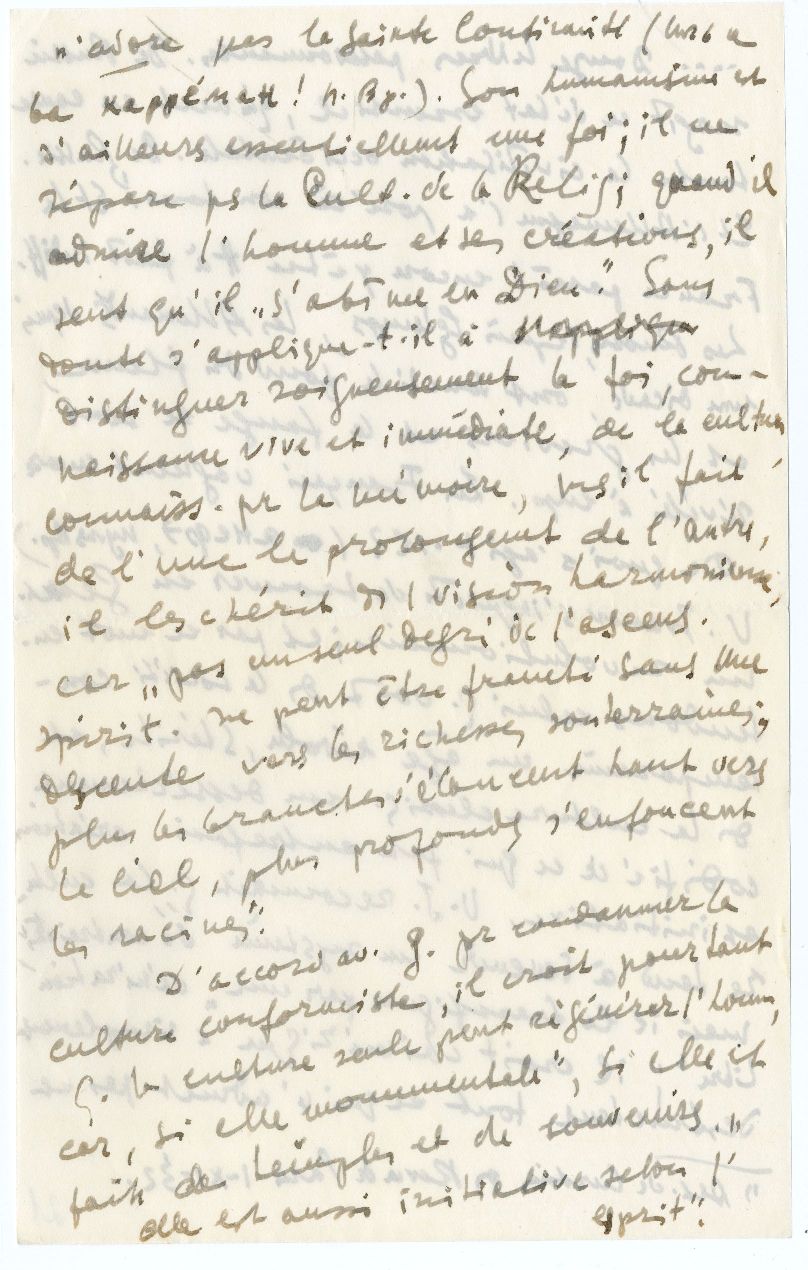 n'adore pas la Sainte Continuité (
ba ! n. By.). Son humanisme est
d'ailleurs essentiellement une foi; il ne
sépare ps la Cult. de la Relig; quand il
admire l'homme et ses créations, il
sent qu'il „s'abîme en Dieu". Sans
doute s'applique-t-il à
distinguer soigneusement la foi, con-
naissance vive et immédiate, de la culture,
connaiss. pr la mémoire, ms il fait
de l'une le prolongemt de l'autre,
il les chérit ds 1 vision harmonieuse,
car „pas un seul degré de l'ascens.
spirit. ne peut être franchi sans une
descente vers les richesses souterraines;
plus les branches s'élancent haut vers
le ciel, plus profonds s'enfoncent
les racines".
D'accord av. G. pr condamner la
culture conformiste, il croit pourtant
q. la culture seule peut régénérer l'homme,
car, si elle monumentale", si elle est
faite de temples et de souvenirs, „
elle est aussi initiative selon l'
esprit".